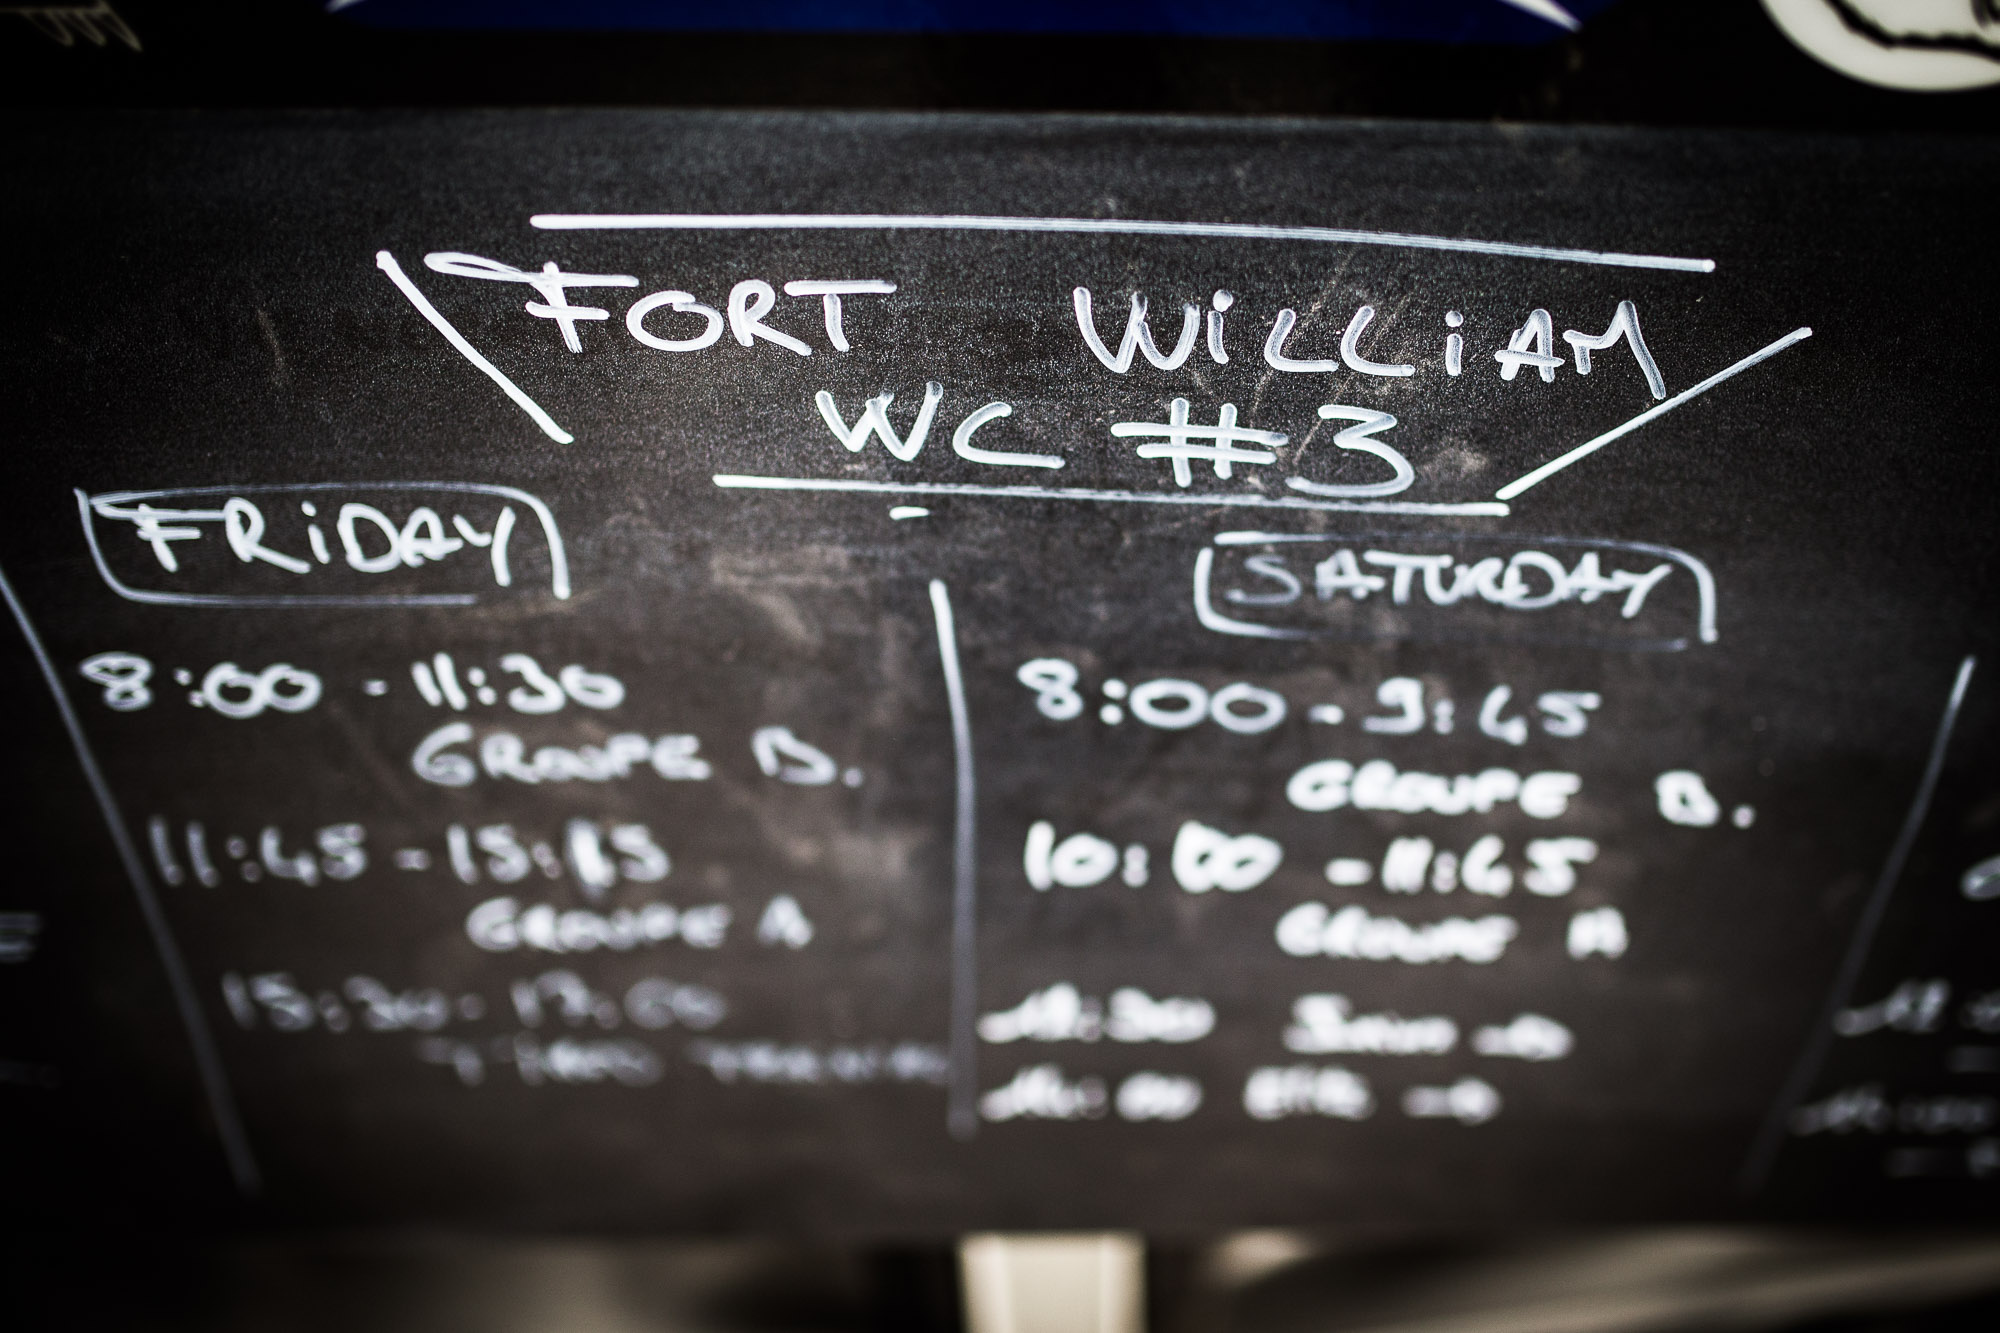 FORT WiLLiAM
WC #3
FRiDAY
8:00 - 11:30
GROUPE B.
11:45 - 15:15
GROUPE A
15:30 - 17:00
SATURDAY
8:00 - 9:45
GROUPE B.
10:00 - 11:45
GROUPE A
12:30